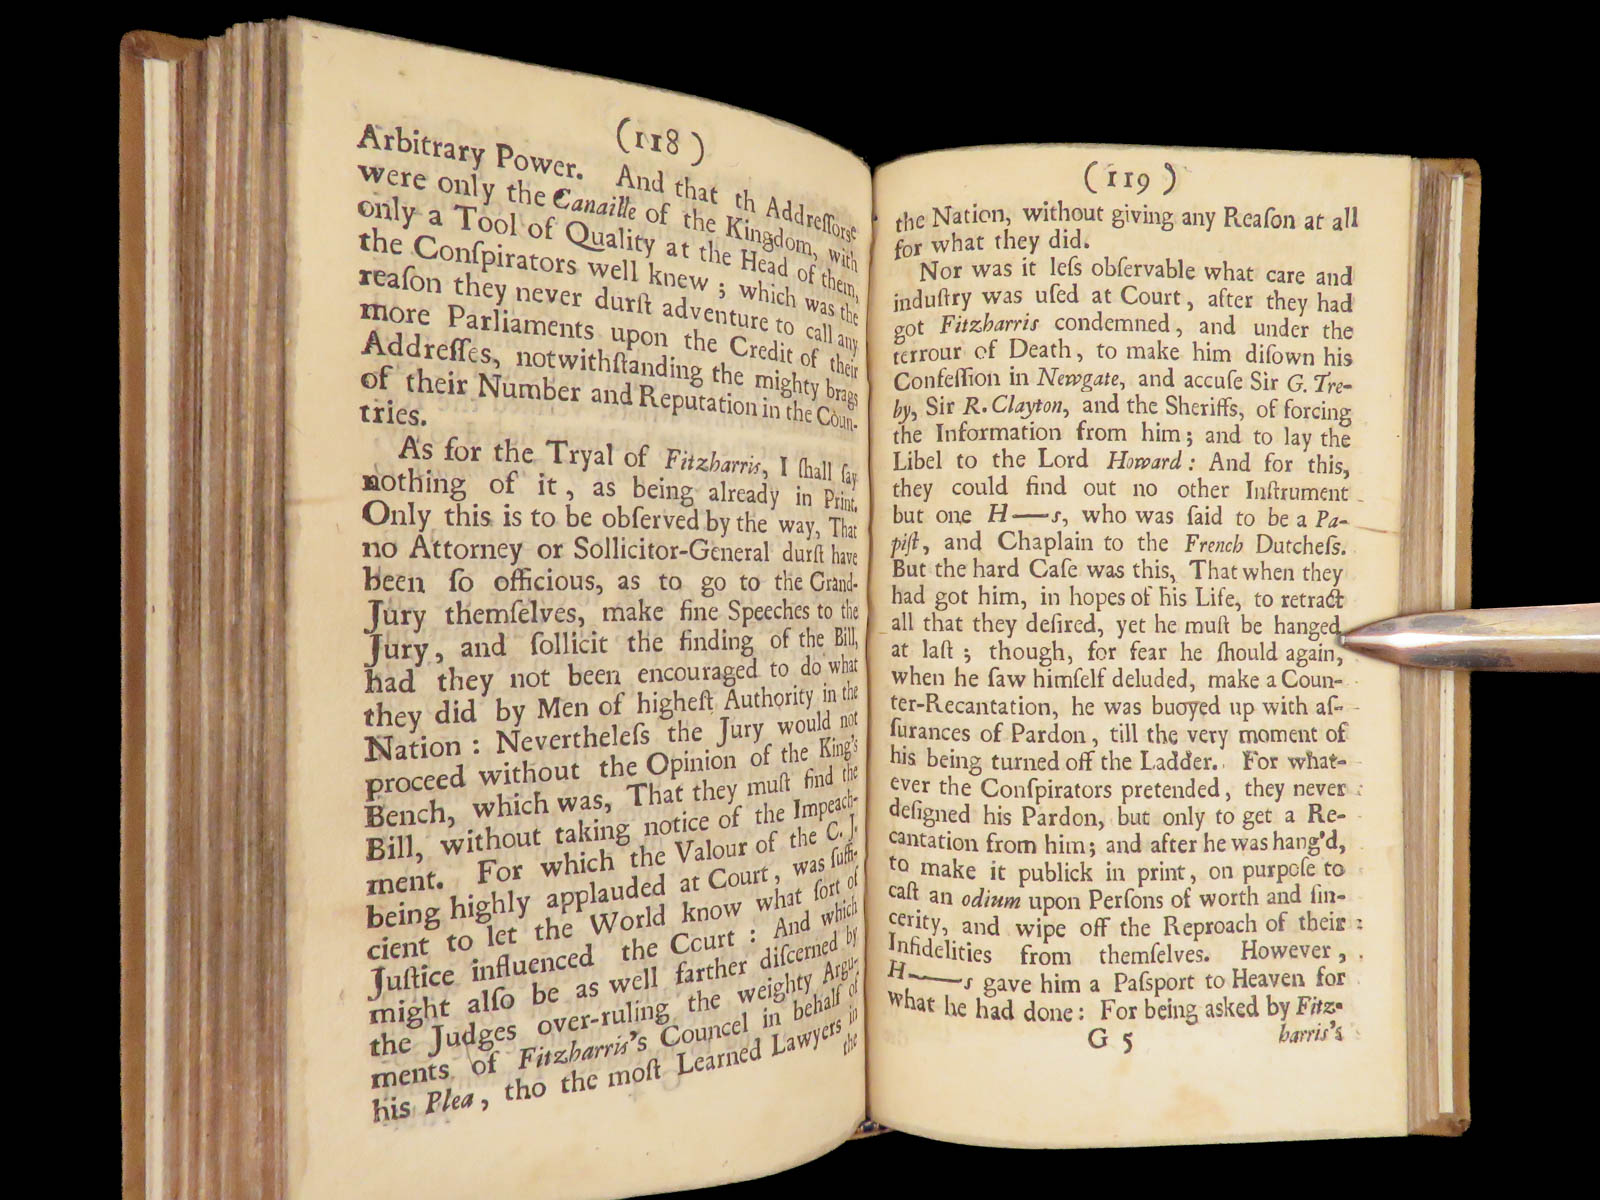 (118)
Arbitrary Power. And that th Addreſſorse
were only the Canaille of the Kingdom, with
only a Tool of Quality at the Head of them,
the Conſpirators well knew ; which was the
reaſon they never durſt adventure to call any
more Parliaments upon the Credit of their
Addreſſes, notwithſtanding the mighty brags
of their Number and Reputation in the Coun-
tries.
As for the Tryal of Fitzharris, I ſhall ſay
nothing of it, as being already in Print.
Only this is to be obſerved by the way, That
no Attorney or Sollicitor-General durſt have
been ſo officious, as to go to the Grand-
Jury themſelves, make fine Speeches to the
Jury, and ſollicit the finding of the Bill,
had they not been encouraged to do what
they did by Men of higheſt Authority in the
Nation : Nevertheleſs the Jury would not
proceed without the Opinion of the King's
Bench, which was, That they muſt find the
Bill, without taking notice of the Impeach-
ment. For which the Valour of the C. J.
being highly applauded at Court, was ſuffi-
cient to let the World know what ſort of
Juſtice influenced the Ccurt : And which
might alſo be as well farther diſcerned by
the Judges over-ruling the weighty Argu-
ments of Fitzharris's Councel in behalf of
his Plea, tho the moſt Learned Lawyers in
the
(119)
the Nation, without giving any Reaſon at all
for what they did.
Nor was it leſs obſervable what care and
induſtry was uſed at Court, after they had
got Fitzharris condemned, and under the
terrour of Death, to make him diſown his
Confeſſion in Newgate, and accuſe Sir G. Tre-
by, Sir R. Clayton, and the Sheriffs, of forcing
the Information from him; and to lay the
Libel to the Lord Howard : And for this,
they could find out no other Inſtrument
but one H—s, who was ſaid to be a Pa-
piſt, and Chaplain to the French Dutcheſs.
But the hard Caſe was this, That when they
had got him, in hopes of his Life, to retract
all that they deſired, yet he muſt be hanged
at laſt ; though, for fear he ſhould again,
when he ſaw himſelf deluded, make a Coun-
ter-Recantation, he was buoyed up with aſ-
ſurances of Pardon, till the very moment of
his being turned off the Ladder. For what-
ever the Conſpirators pretended, they never
deſigned his Pardon, but only to get a Re-
cantation from him; and after he was hang'd,
to make it publick in print, on purpoſe to
caſt an odium upon Perſons of worth and ſin-
cerity, and wipe off the Reproach of their
Infidelities from themſelves. However,
H—s gave him a Paſsport to Heaven for
what he had done : For being asked by Fitz-
G 5
harris's